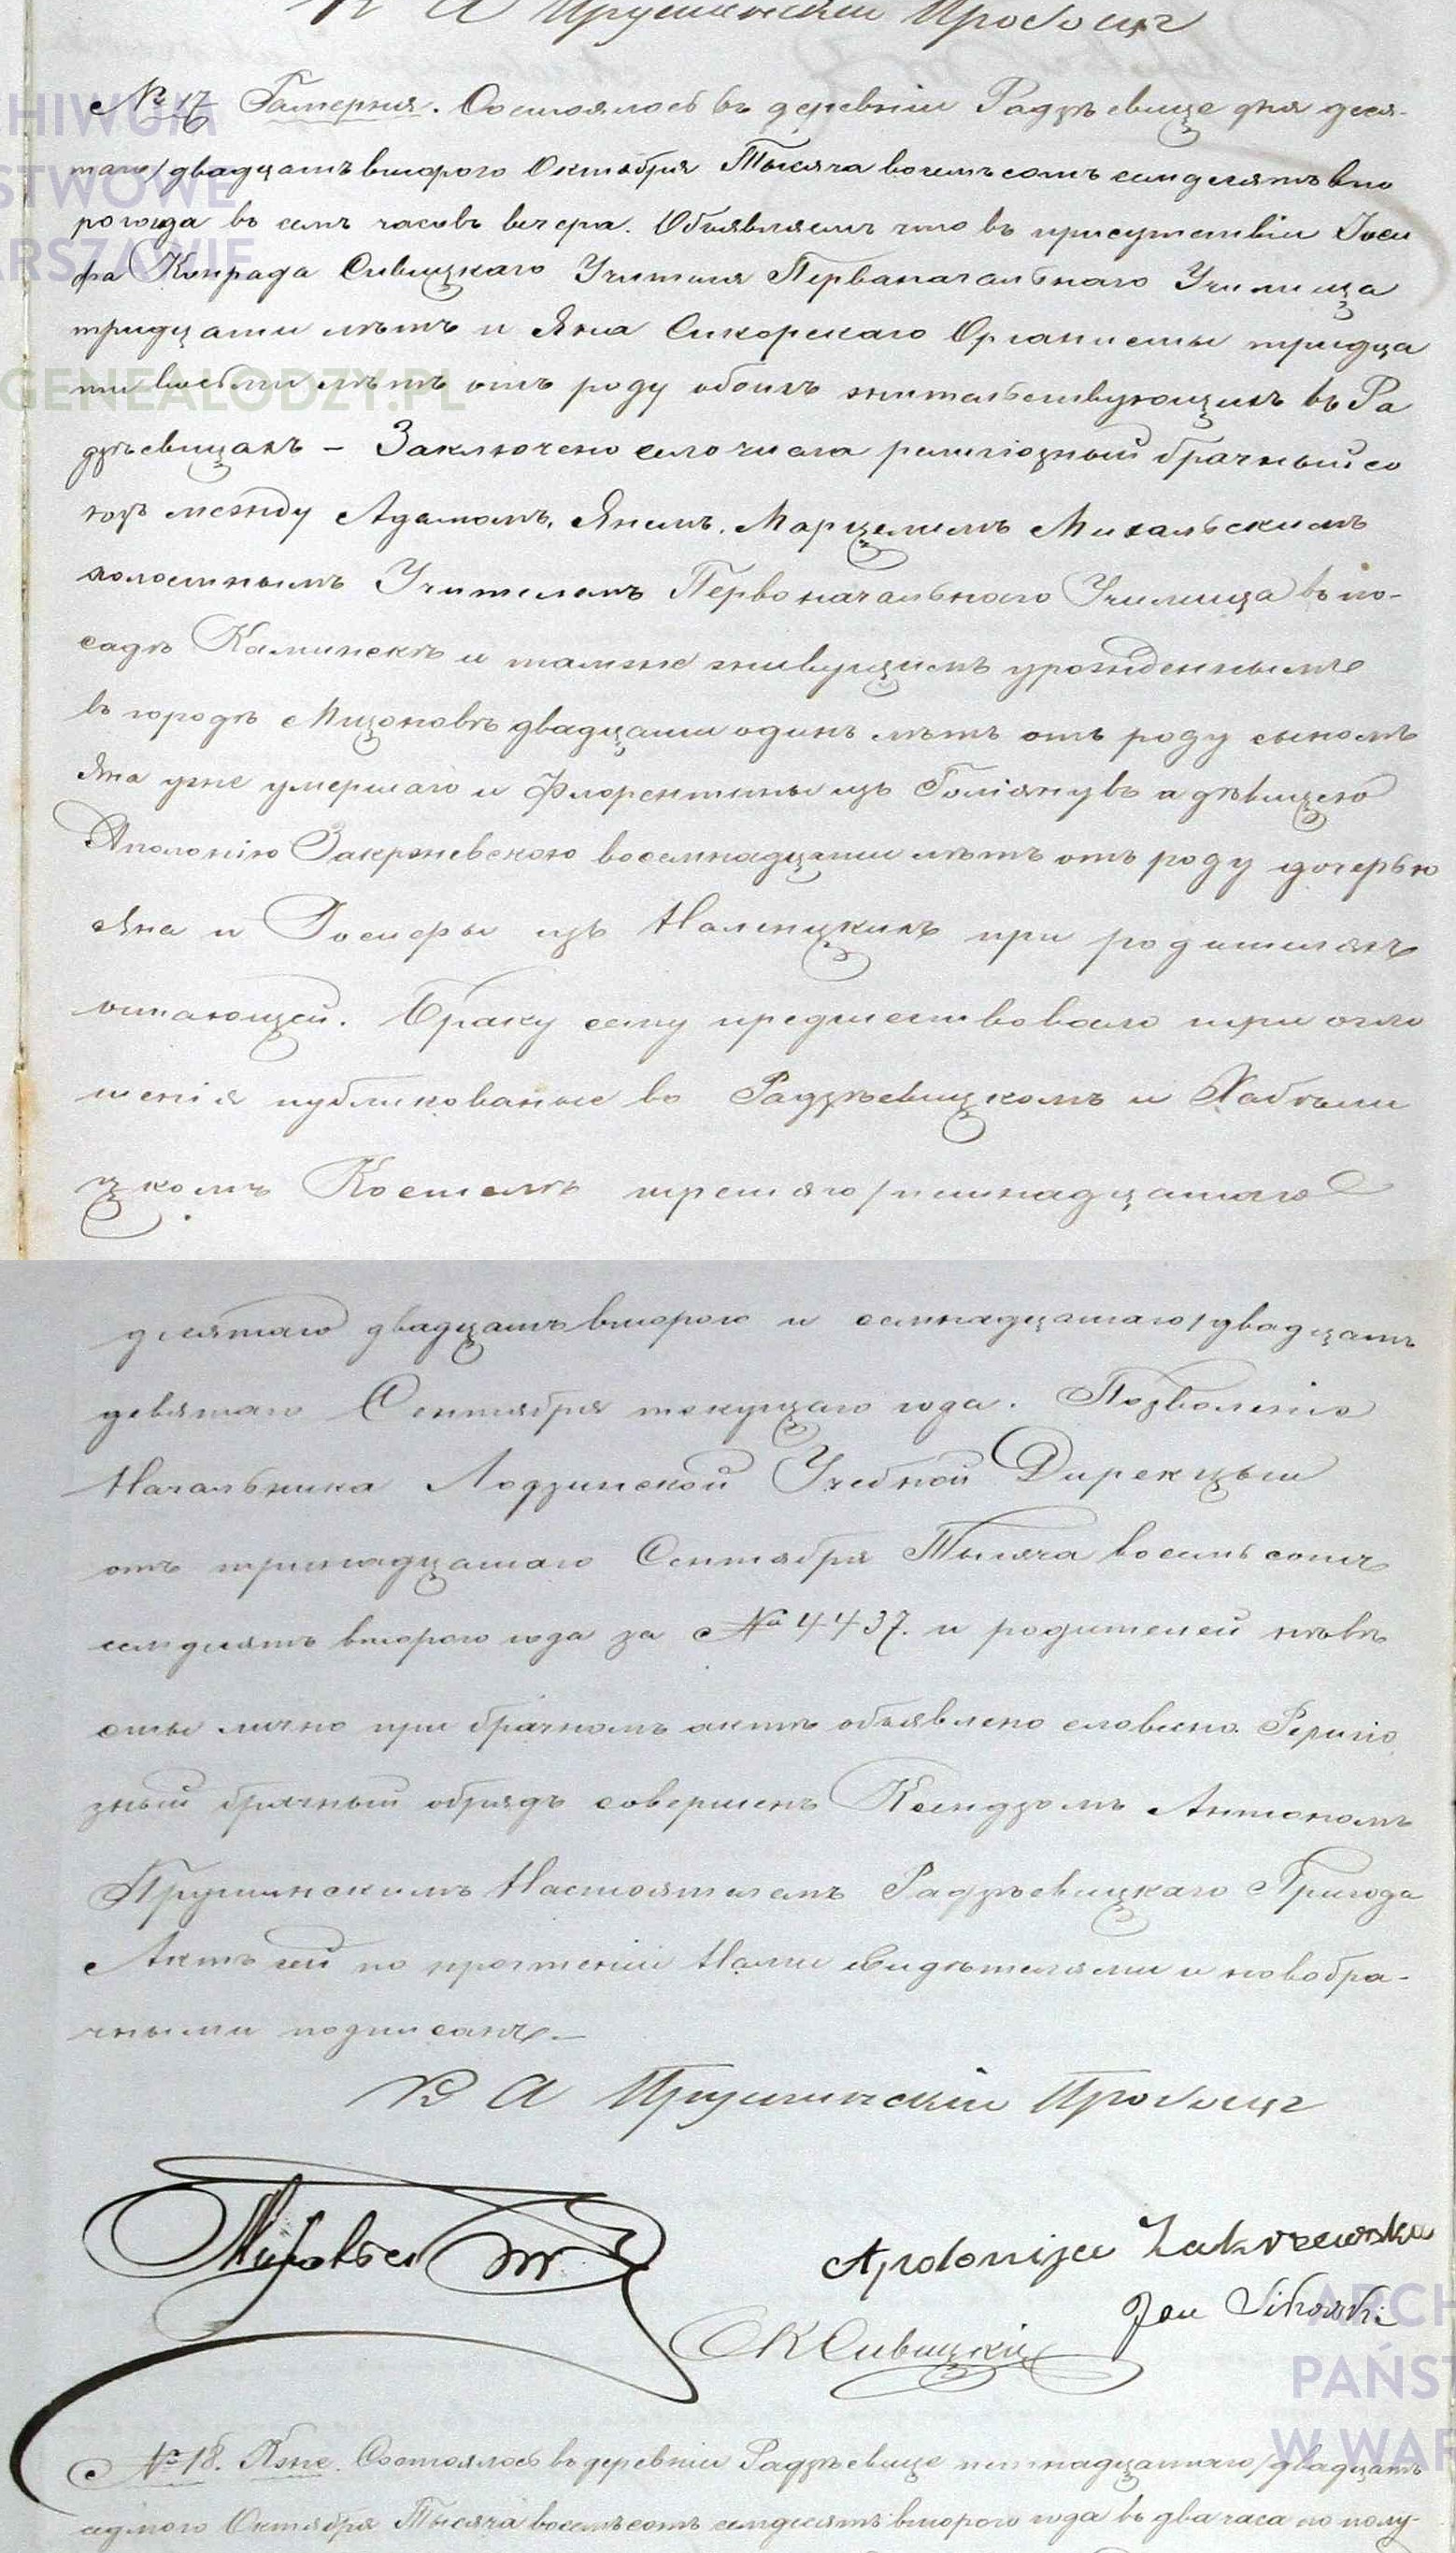 К А Прушинскій Пробощъ
№ 17 Гамерня. Состоялось въ деревніи Радзѣевице дня деся-
таго/двадцать второго Октября Тысяча восемъсотъ семдесятъ вто
рого года въ семъ часовъ вечера. Объявляемъ что въ присутствіи Іоси
фа Конрада Сивицкаго Учителя Первоначальнаго Училища
тридцати лѣтъ и Яна Сикорскаго Органисты тридца
ти восьми лѣтъ отъ роду обоихъ жительствующихъ въ Ра
дзѣевицахъ – Заключено сего числа религіозный брачный со
юзъ между Адамомъ, Яномъ, Марцелимъ Михальскимъ
холостымъ Учителемъ Первоначальнаго Училища въ по-
садѣ Каминскъ и тамже живущимъ урожденнымъ
въ городѣ Мщоновѣ двадцати одинъ лѣтъ отъ роду сыномъ
Яна уже умершаго и Флорентины изъ Голіянувъ а дѣвицею
Аполонію Закржевскою восемнадцати лѣтъ отъ роду дочерью
Яна и Юзефы изъ Налепцкихъ при родителяхъ
остающей. Браку сему предшествовало три огло
шенія публикованые во Радзѣевицкомъ и Хабѣли
цкомъ Костелѣ третяго/пятнадцатаго
десятаго двадцать второго и семнадцатаго/двадцать
девятаго Сентября текущаго года. Позволеніе
Начальника Лодзинской Учебной Дирекцыи
отъ тринадцатаго Сентября Тысяча восемьсотъ
семдесятъ второго года за № 4437. и родителей невѣ
сты лично при брачномъ актѣ объявлено словесно. Религіо
зный брачный обрядъ совершенъ Ксендзомъ Антономъ
Прушинскимъ Настоятелемъ Радзѣевицкаго Прихода
Актъ сей по прочтеніи Нами Свидѣтелями и новобра-
чными подписанъ.–
К А Прушинскій Пробощъ
Apolonija Zakrzewska
Jan Sikorski
К Сивицкій
№ 18. Состоялось въ деревніи Радзѣевице пятнадцатаго/двадцать
седмого Октября Тысяча восемъсотъ семдесятъ второго года въ два часа по полу-
GENEALODZY.PL